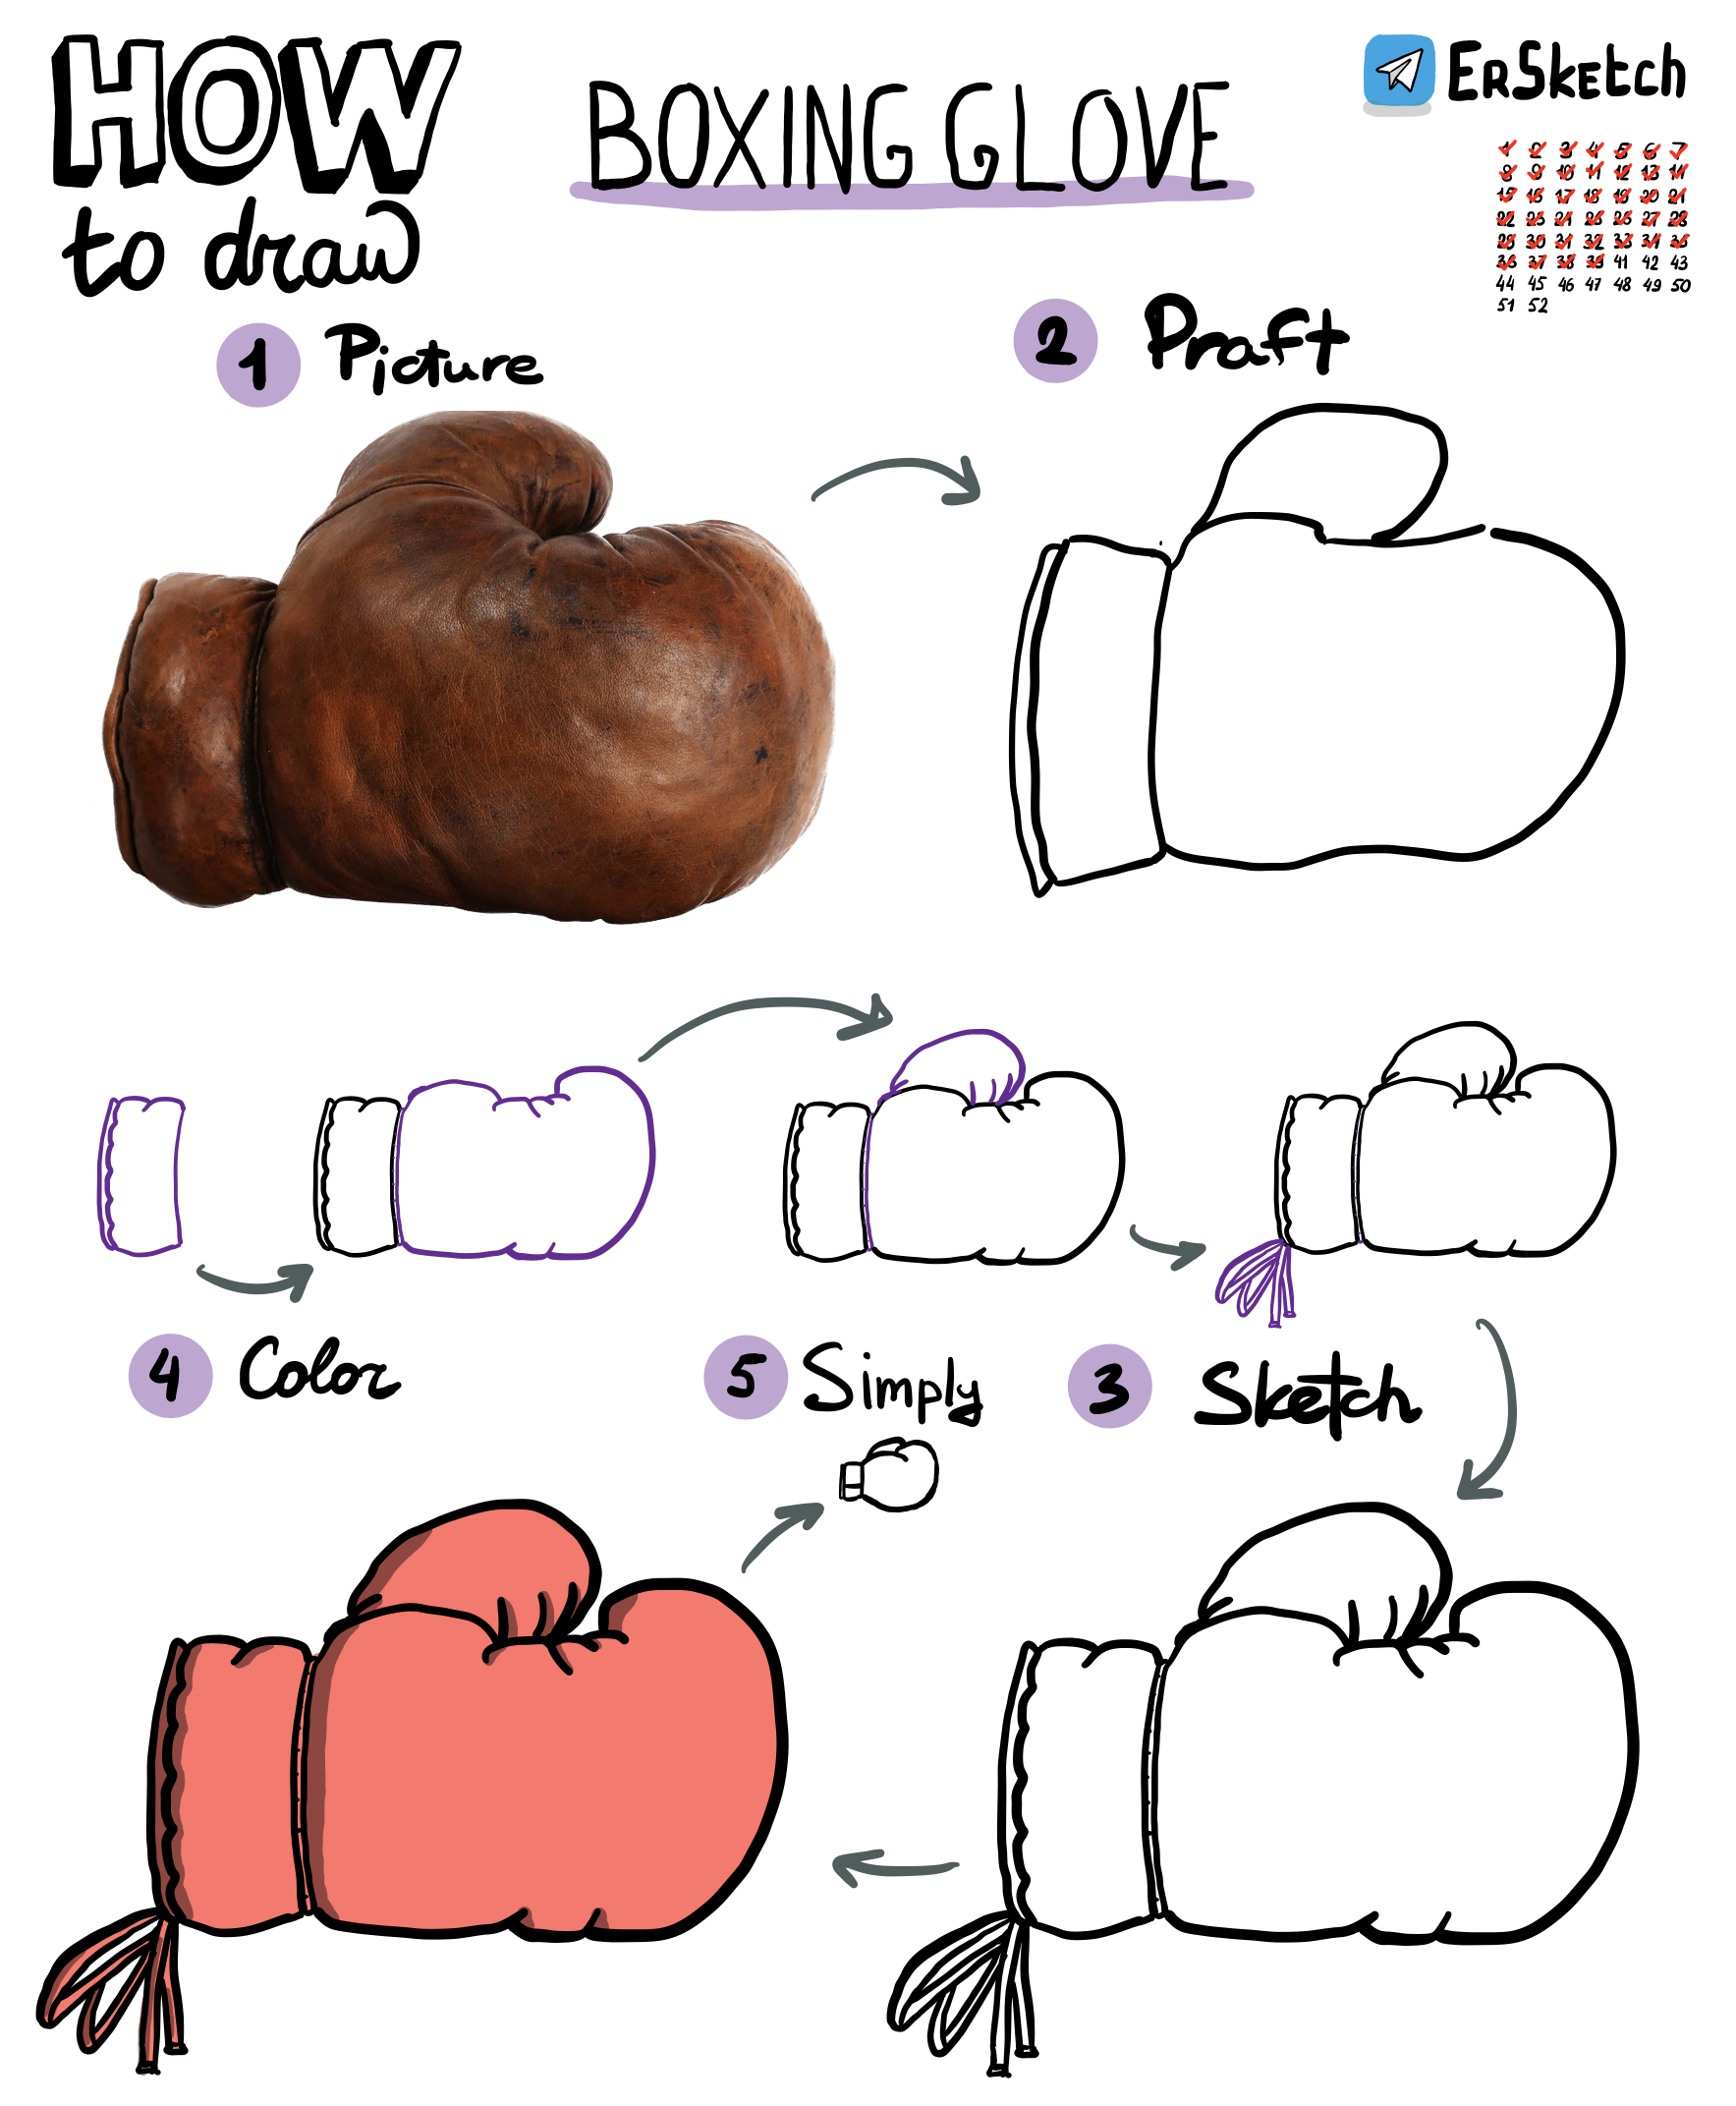 HOW
to draw
BOXING GLOVE
ErSketch
1 2 3 4 5 6 7
8 9 10 11 12 13 14
15 16 17 18 19 20 21
22 23 24 25 26 27 28
29 30 31 32 33 34 35
36 37 38 39 41 42 43
44 45 46 47 48 49 50
51 52
1 Picture
2 Praft
4 Color
5 Simply
3 Sketch